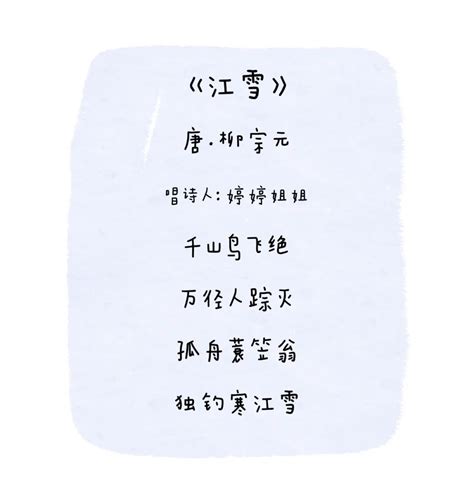 《江雪》
唐.柳宗元
唱诗人:婷婷姐姐
千山鸟飞绝
万径人踪灭
孤舟蓑笠翁
独钓寒江雪